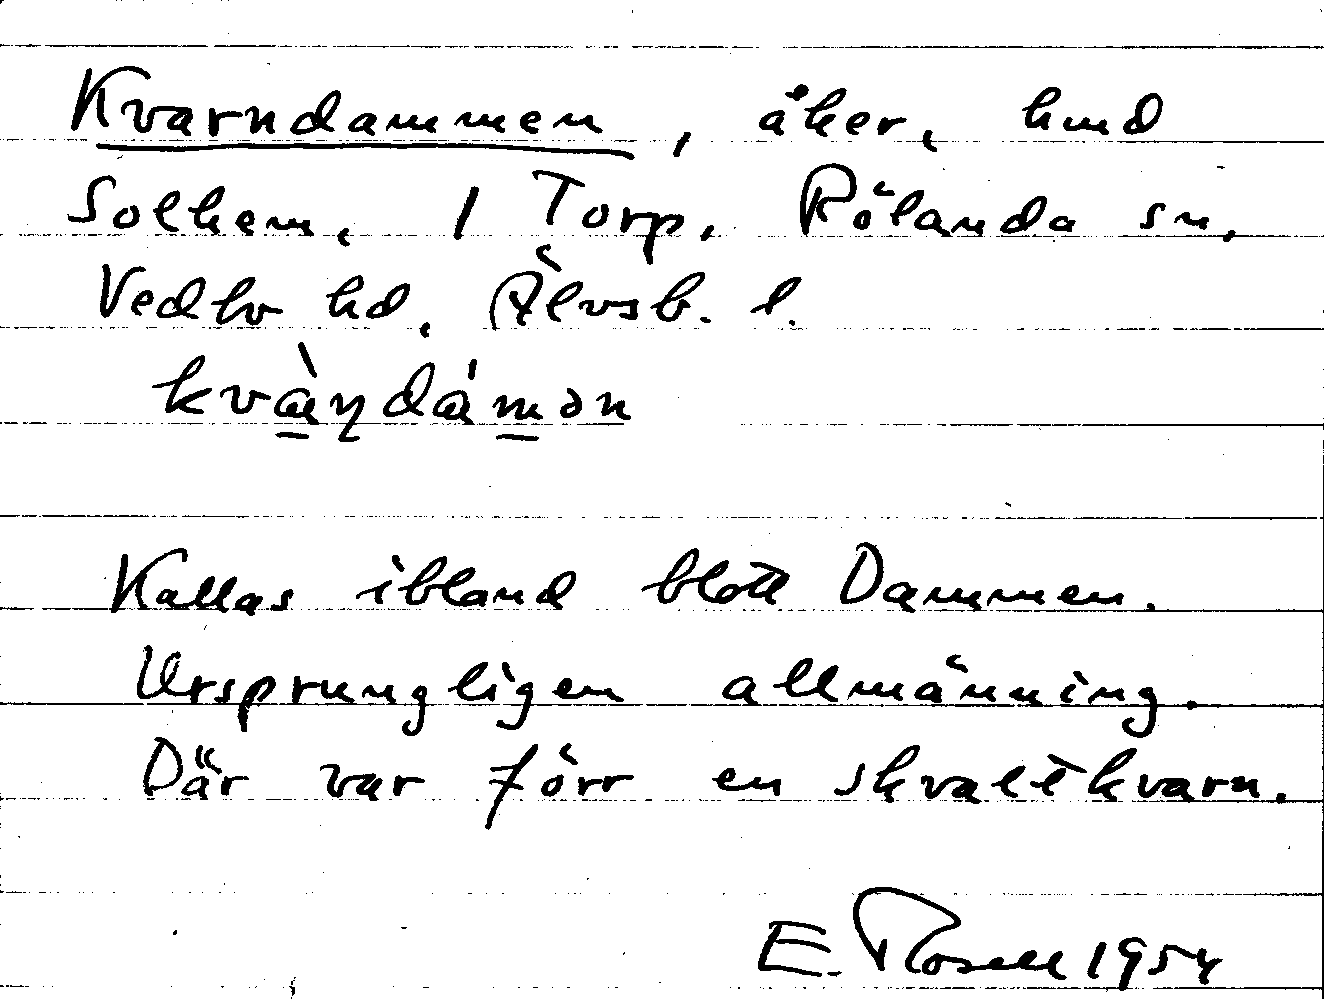 Kvarndammen, åker, hmd
Solhem, 1 Torp, Rölanda sn,
Vedbo hd, Älvsb. l.
kvàṇdámən
Kallas ibland blott Dammen.
Ursprungligen allmänning.
Där var förr en skvaltkvarn.
E. Rosell 1954